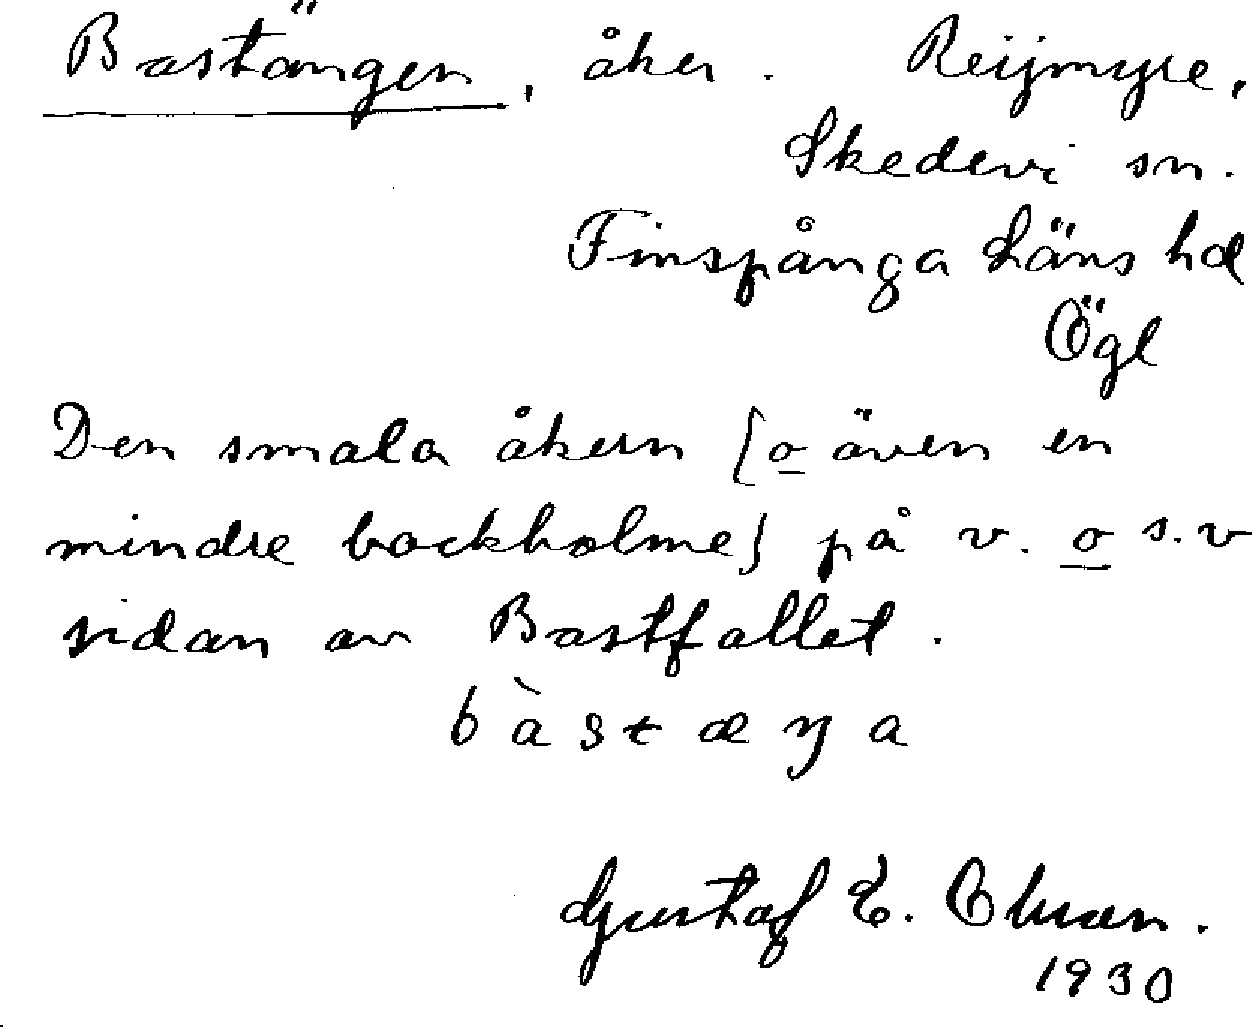 Bastängen, åker. Reijmyre,
Skedevi sn.
Finspånga Läns hd
Ögl
Den smala åkern (o även en
mindre backholme) på v. o s.v
sidan av Bastfallet.
bàstæŋa
Gustaf E.
1930